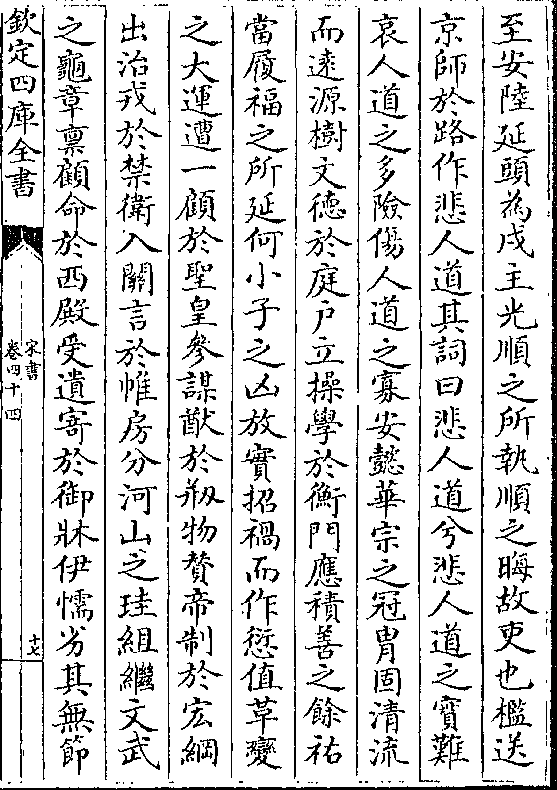 至安陸延頭為戍主光順之所執順之晦故吏也檻送
京師於路作悲人道其詞曰悲人道兮悲人道之實難
哀人道之多險傷人道之寡安懿華宗之冠胄固清流
而遠源樹文德於庭户立操學於衡門應積善之餘祐
當履福之所延何小子之凶放實招禍而作愆值草變
之大運遭一顧於聖皇參謀猷於剏物贊帝制於宏綱
出治戎於禁衛入關言於帷房分河山之珪組繼文武
之龜章禀顧命於西殿受遺寄於御牀伊懦劣其無節
欽定四庫全書
宋書
卷四十四
十七